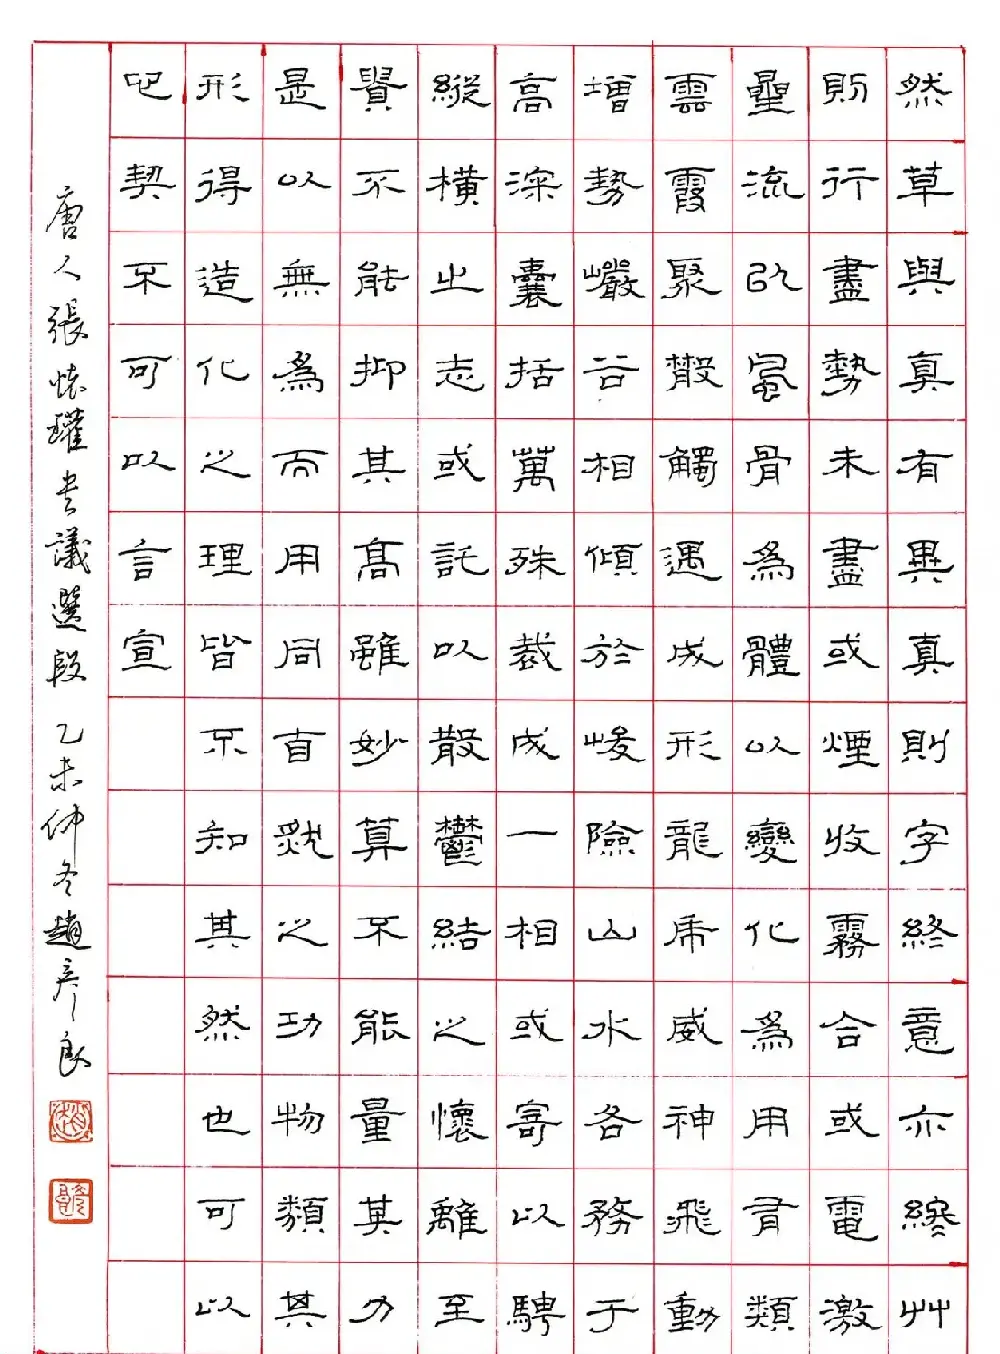 然草與真有異真則字終意亦終艸
則行盡勢未盡或煙收霧合或電激
星流以風骨為體以變化為用有類
雲霞聚散觸遇成形龍虎威神飛動
增勢巖谷相傾於峻險山水各務于
高深囊括萬殊裁成一相或寄以騁
縱橫之志或託以散鬱結之懷雖至
貴不能抑其高雖妙算不能量其力
是以無為而用同自然之功物類其
形得造化之理皆不知其然也可以
契不可以言宣
唐人張懷瓘書議選段 乙未仲冬趙彥良